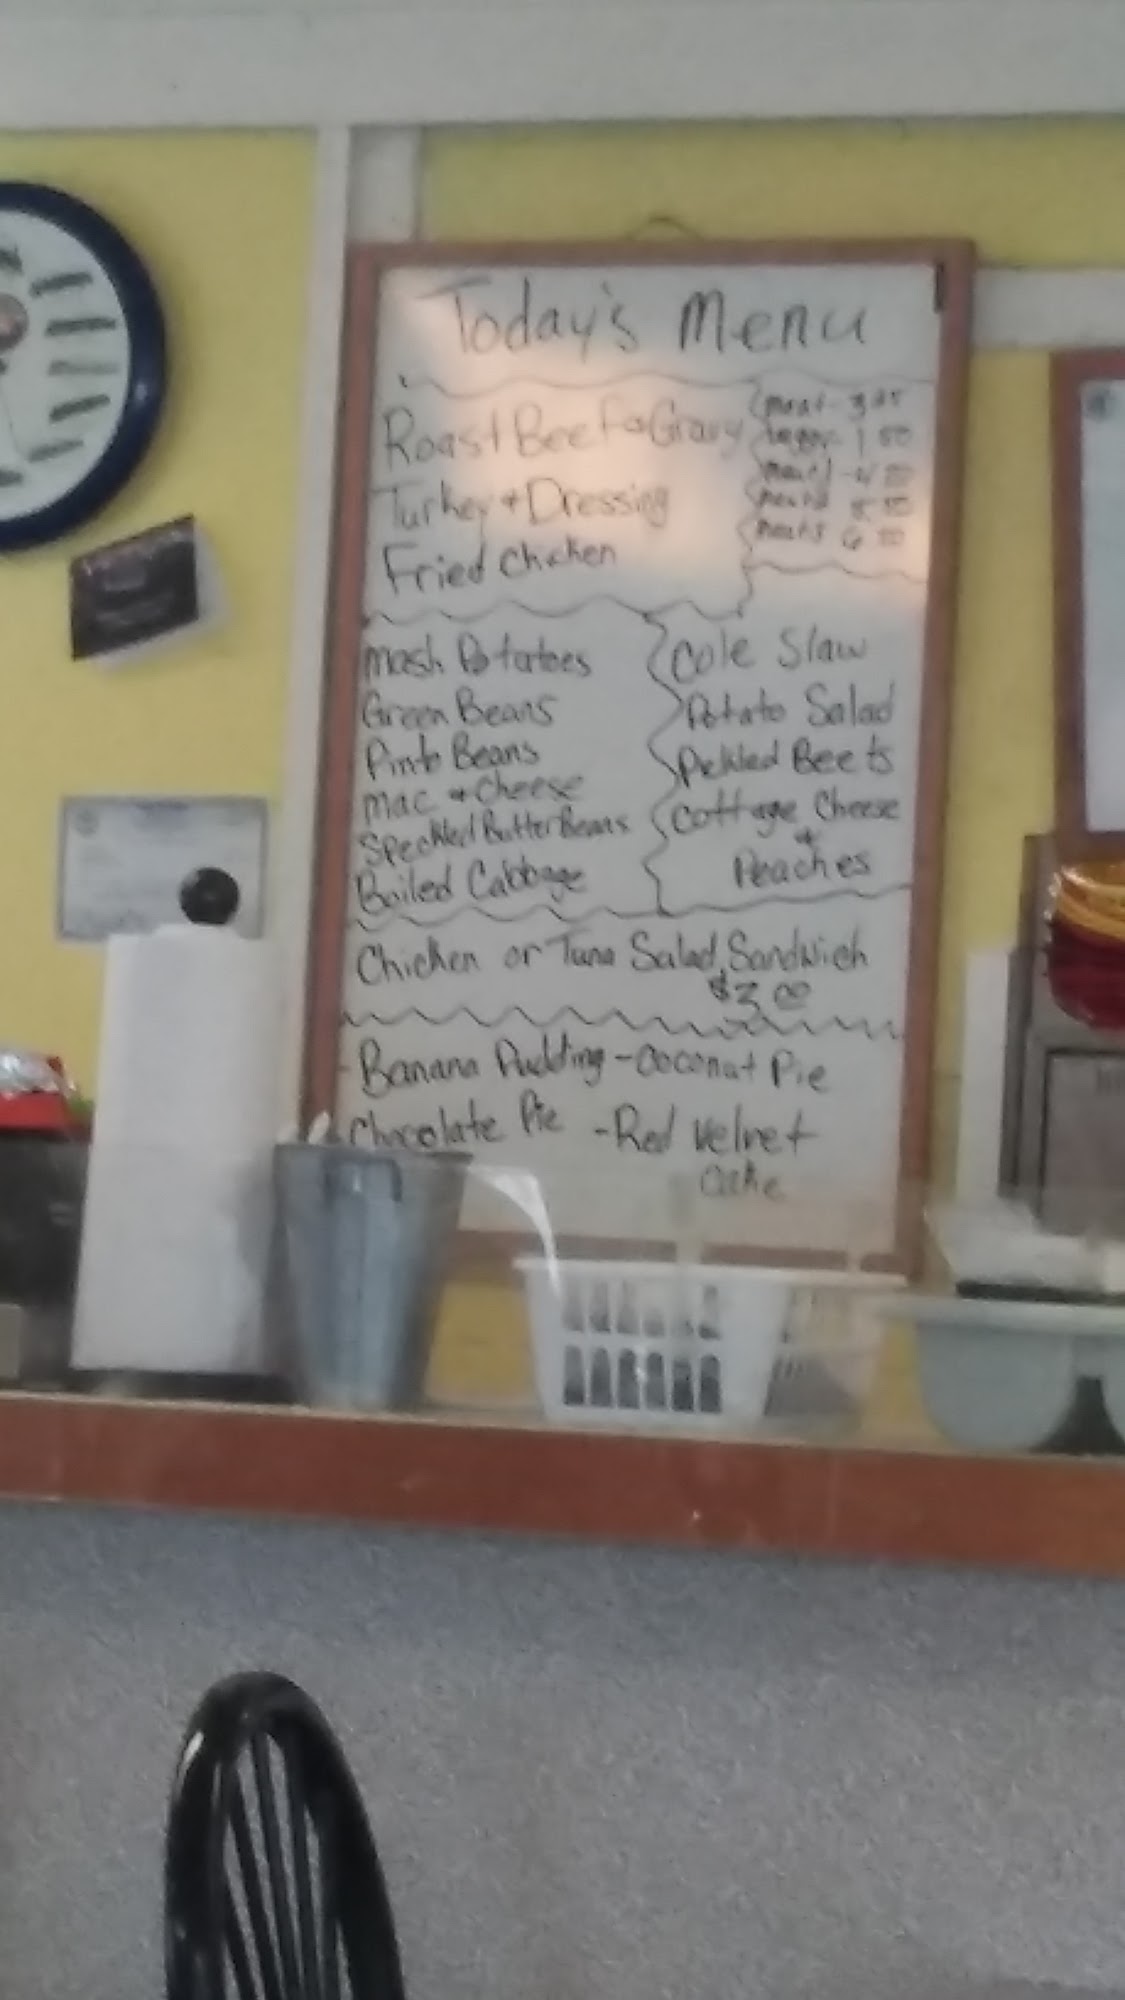 Today's Menu
Roast Beef & Gravy
Turkey & Dressing
Fried Chicken
meat - 3
1 50
meat 1 - 4 50
meat 2 5 50
meat 3 6 50
Mash Potatoes
Green Beans
Pinto Beans
Mac & Cheese
Speckled Butter Beans
Boiled Cabbage
Cole Slaw
Potato Salad
Pickled Beets
Cottage Cheese
&
Peaches
Chicken or Tuna Salad Sandwich
$3.00
- Banana Pudding - Coconut Pie
Chocolate Pie - Red Velvet
Cake